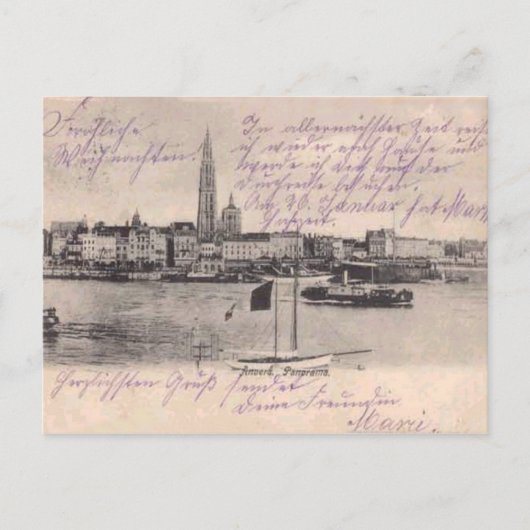 Fröhliche
Weihnachten.
In allernächster Zeit reise
ich wieder nach Hause und
werde ich dich auf der
Durchreise besuchen.
Am 26. Januar hat Marie
Hochzeit.
Anvers. Panorama.
Herzlichsten Gruß sendet
Deine Freundin
Marie.